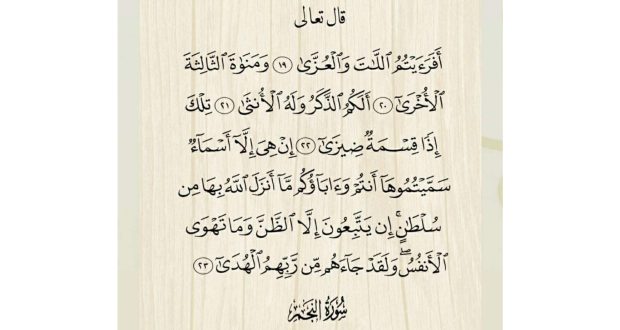 قال تعالى
أَفَرَءَيْتُمُ ٱللَّٰتَ وَٱلْعُزَّىٰ ١٩ وَمَنَوٰةَ ٱلثَّالِثَةَ
ٱلْأُخْرَىٰٓ ٢٠ أَلَكُمُ ٱلذَّكَرُ وَلَهُ ٱلْأُنثَىٰ ٢١ تِلْكَ
إِذًا قِسْمَةٌ ضِيزَىٰٓ ٢٢ إِنْ هِيَ إِلَّآ أَسْمَآءٌ
سَمَّيْتُمُوهَآ أَنتُمْ وَءَابَآؤُكُم مَّآ أَنزَلَ ٱللَّهُ بِهَا مِن
سُلْطَٰنٍ ۚ إِن يَتَّبِعُونَ إِلَّا ٱلظَّنَّ وَمَا تَهْوَى
ٱلْأَنفُسُ ۖ وَلَقَدْ جَآءَهُم مِّن رَّبِّهِمُ ٱلْهُدَىٰٓ ٢٣
سُورَةُ النَّجْمِ